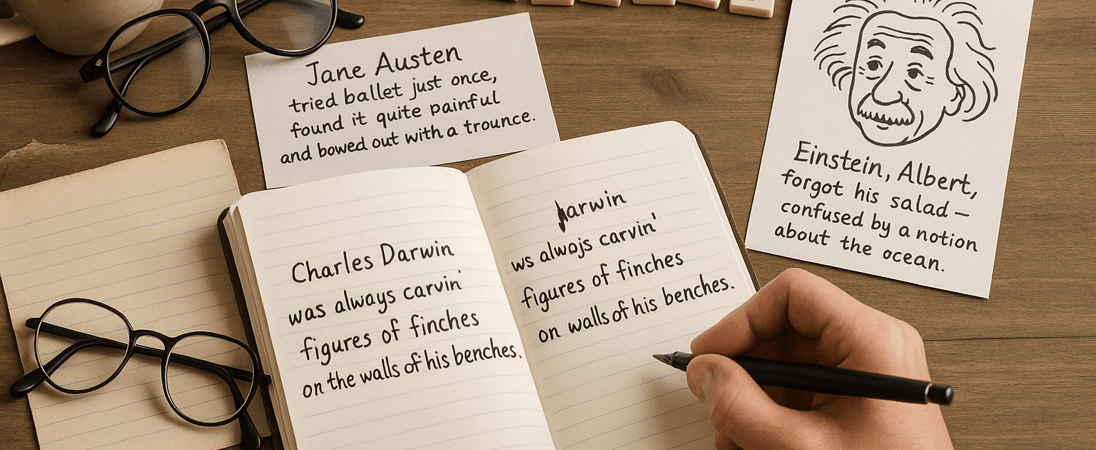 Jane Austen
tried ballet just once,
found it quite painful
and bowed out with a trounce.
Einstein, Albert,
forgot his salad –
confused by a notion
about the ocean.
Charles Darwin
was always carvin'
figures of finches
on the walls of his benches.
arwin
ws alwajs carvin'
figures of finches
on walls of his benches.